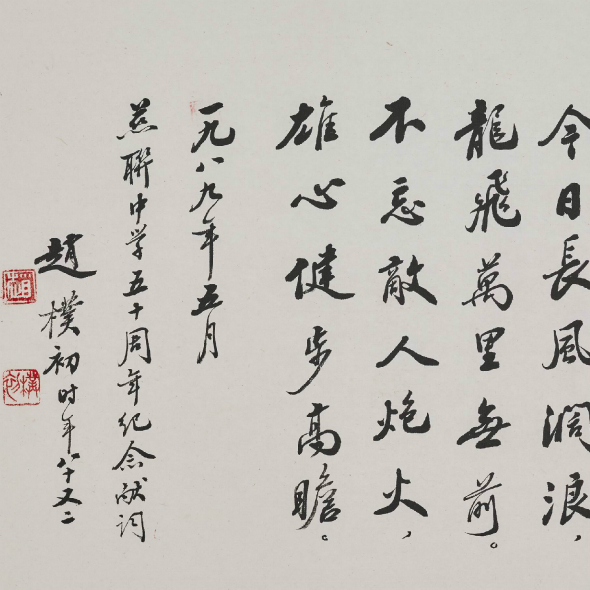 今日長風濶浪，
龍飛萬里無前。
不忘敵人炮火，
雄心健步高瞻。
一九八九年五月
慈聯中学五十周年纪念献词
趙樸初时年八十又二
趙
樸初